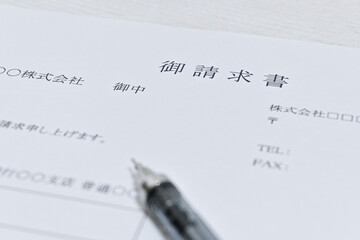 御請求書
〇〇株式会社 御中
株式会社□□□
〒
請求申し上げます。
TEL:
FAX:
行〇〇支店 普通〇